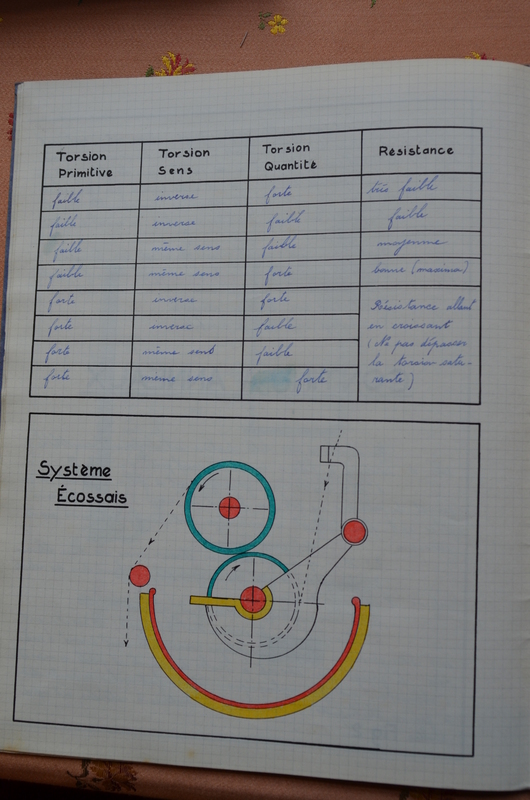 Torsion Primitive Torsion Sens Torsion Quantité Résistance
faible inverse forte très faible
faible inverse faible faible
faible même sens faible moyenne
faible même sens forte bonne (maximum)
forte inverse forte Résistance allant
forte inverse faible en croissant
forte même sens faible (Ne pas dépasser
forte même sens forte la torsion satu-
rante)
Système
Écossais